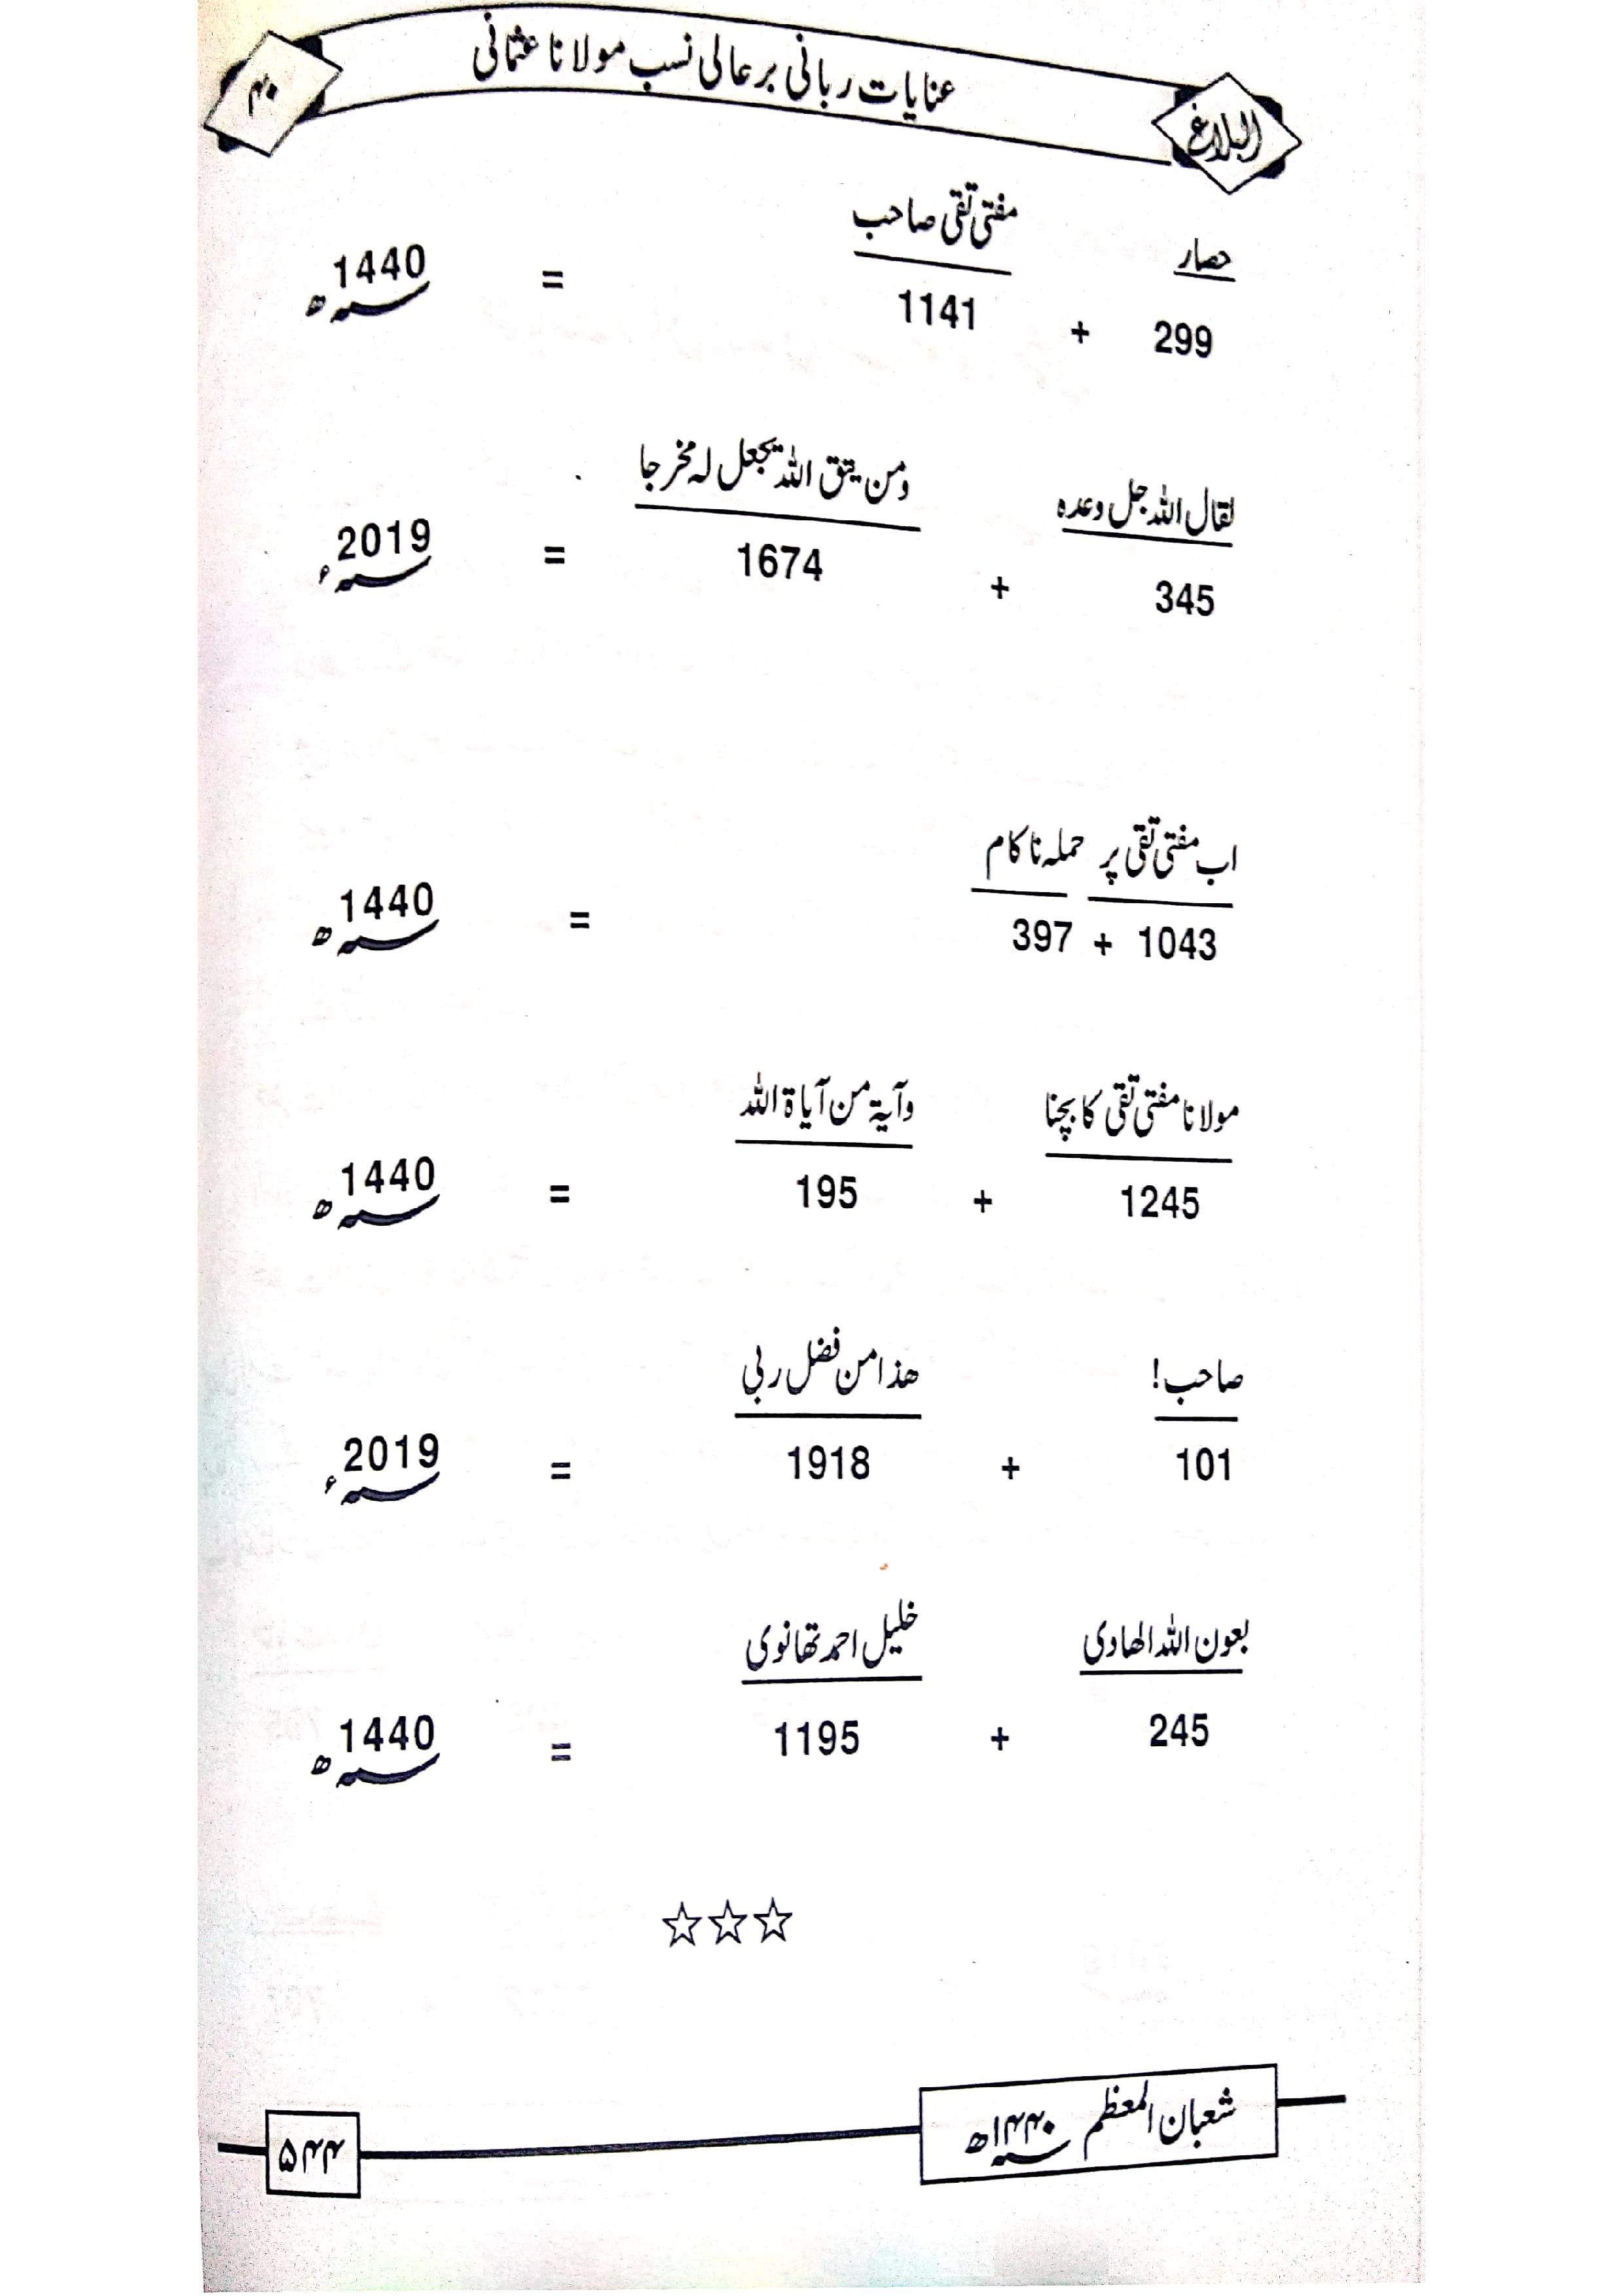 البلاغ عنایات ربانی بر عالی نسب مولانا عثمانی ۴۰
حصار مفتی تقی صاحب
299 + 1141 = 1440ھ
لقال اللہ جل وعدہ ومن یتق اللہ یجعل لہ مخرجا
345 + 1674 = 2019ء
اب مفتی تقی پر حملہ ناکام
1043 + 397 = 1440ھ
مولانا مفتی تقی کا بچنا وآیۃ من آیاۃ اللہ
1245 + 195 = 1440ھ
صاحب! ھذا من فضل ربی
101 + 1918 = 2019ء
بعون اللہ الھادی خلیل احمد تھانوی
245 + 1195 = 1440ھ
☆☆☆
شعبان المعظم ۱۴۴۰ھ ۵۴۴